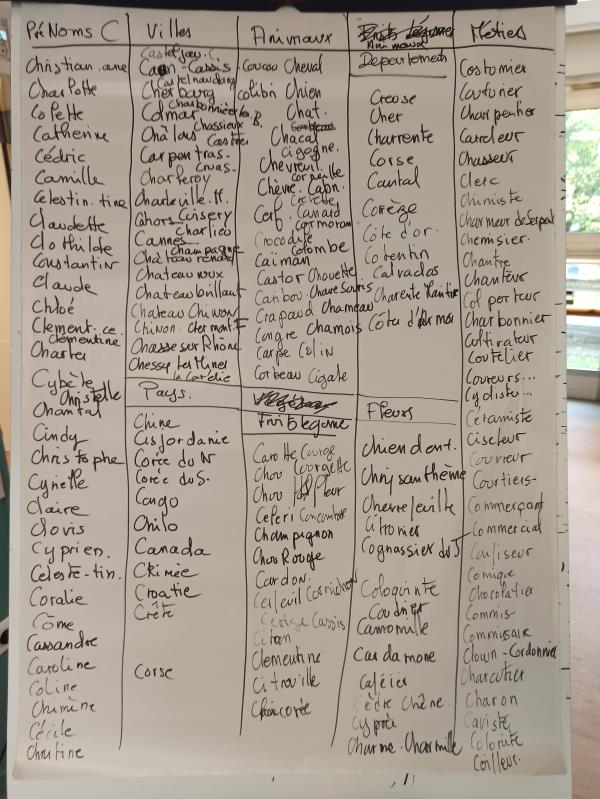 PRéNoms C
Christian.ane
Charlotte
Colette
Catherine
Cédric
Camille
Celestin.tine
Claudette
Clothilde
Constantin
Claude
Chloé
Clement.ce.
Clementine
Charles
Cybèle
Christelle
Chantal
Cindy
Christophe
Cyrielle
Claire
Clovis
Cyprien.
Celeste-tin.
Coralie
Côme
Cassandre
Caroline
Coline
Chimène
Cécile
Christine
Villes
Casteljau.
Caen-Cassis
Castelnaudary
Cherbourg
Charbonnières
Colmar
Chassieux B.
Châlons Castres
Carpentras.
Cruas.
Charleroy
Charleville.M.
Cahors Cuisery
Charlieu
Cannes
Champagne
Château renard
Chateau roux
Chateaubrillant
Chateau Chinon
Chinon. Clermont F
Chasse sur Rhône
Chessy les Mines
La Corélie
Pays.
Chine
Cisjordanie
Corée du N
Corée du S.
Congo
Chilo
Canada
CRimée
Croatie
Crête
Corse
Animaux
Coucou Cheval
Colibri Chien
Chat.
Chacal
Cigogne.
Chevreuil.
Corneille
Chèvre. Cabri.
Crevette
Cerf. Canard
Cormoran
Crocodile
Colombe
Caïman
Castor Chouette
Caribou. Chauve Souris
Crapaud Chameau
Congre Chamois
Carpe Colin
Corbeau Cigale
Fruit legume
Carotte Courge
Chou Courgette
Chou Fleur
Celeri Concombre
Champignon
Chou Rouge
Cardon.
Cerfeuil Cornichon
Cerise Cassis
Citron
Clementine
Citrouille
Chicorée
Fruits légumes
Animaux
Departements
Creuse
Cher
Charrente
Corse
Cantal
Corrèze
Côte d'or.
Cotentin
Calvados
Charente Maritime
Côtes d'Armor
Fleurs
Chiendent.
Chrysanthème
Chevrefeuille
Citronier
Cognassier du J
Coloquinte
Coudrier
Camomille
Cardamone
Caféier
Cèdre Chêne.
Cyprès
Charme. Charmille
Métiers
Costumier
Couturier
Charpentier
Carreleur
Chasseur
Clerc
Chimiste
Charmeur de Serpent
Chemisier.
Chantre
Chanteur
Colporteur
Charbonnier
Cultivateur
Coutelier
Coureurs...
Cycliste...
Céramiste
Ciseleur
Courreur
Courtiers-
Commerçant
Commercial
Comique
Chocolatier
Commis-
Commissaire
Clown-Cordonnier
Charcutier
Charon.
Caviste
Coloriste
Coiffeur.